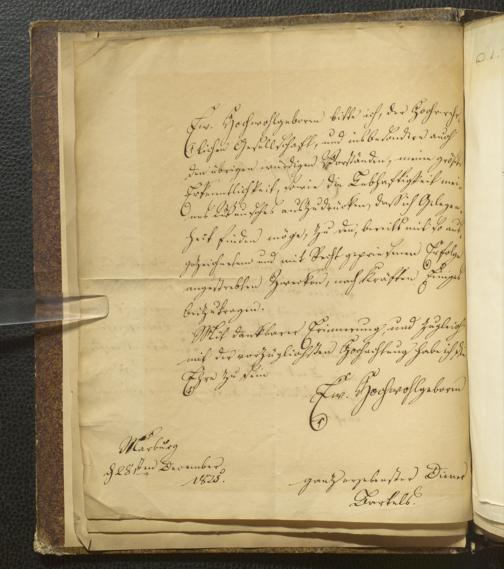 Ew. Hochwohlgeboren bitte ich, der Hochverehr-
lichen Gesellschaft, und insbesondere auch
den übrigen würdigen Vorständen, meine größte
Erkenntlichkeit, sowie die Lebhaftigkeit mei-
nes Wunsches auszudrücken, daß sich Gelegen-
heit finden möge, zu den, bereits mit so aus-
gezeichnetem und mit Recht gepriesenem Erfolge
angestrebten Zwecken, nach Kräften Einiges
beizutragen.
Mit dankbarer Erinnerung und zugleich
mit der vorzüglichsten Hochachtung habe ich die
Ehre zu sein
Ew. Hochwohlgeboren
Marburg
d 28ten December
1825.
ganz ergebenster Diener
Bartels.